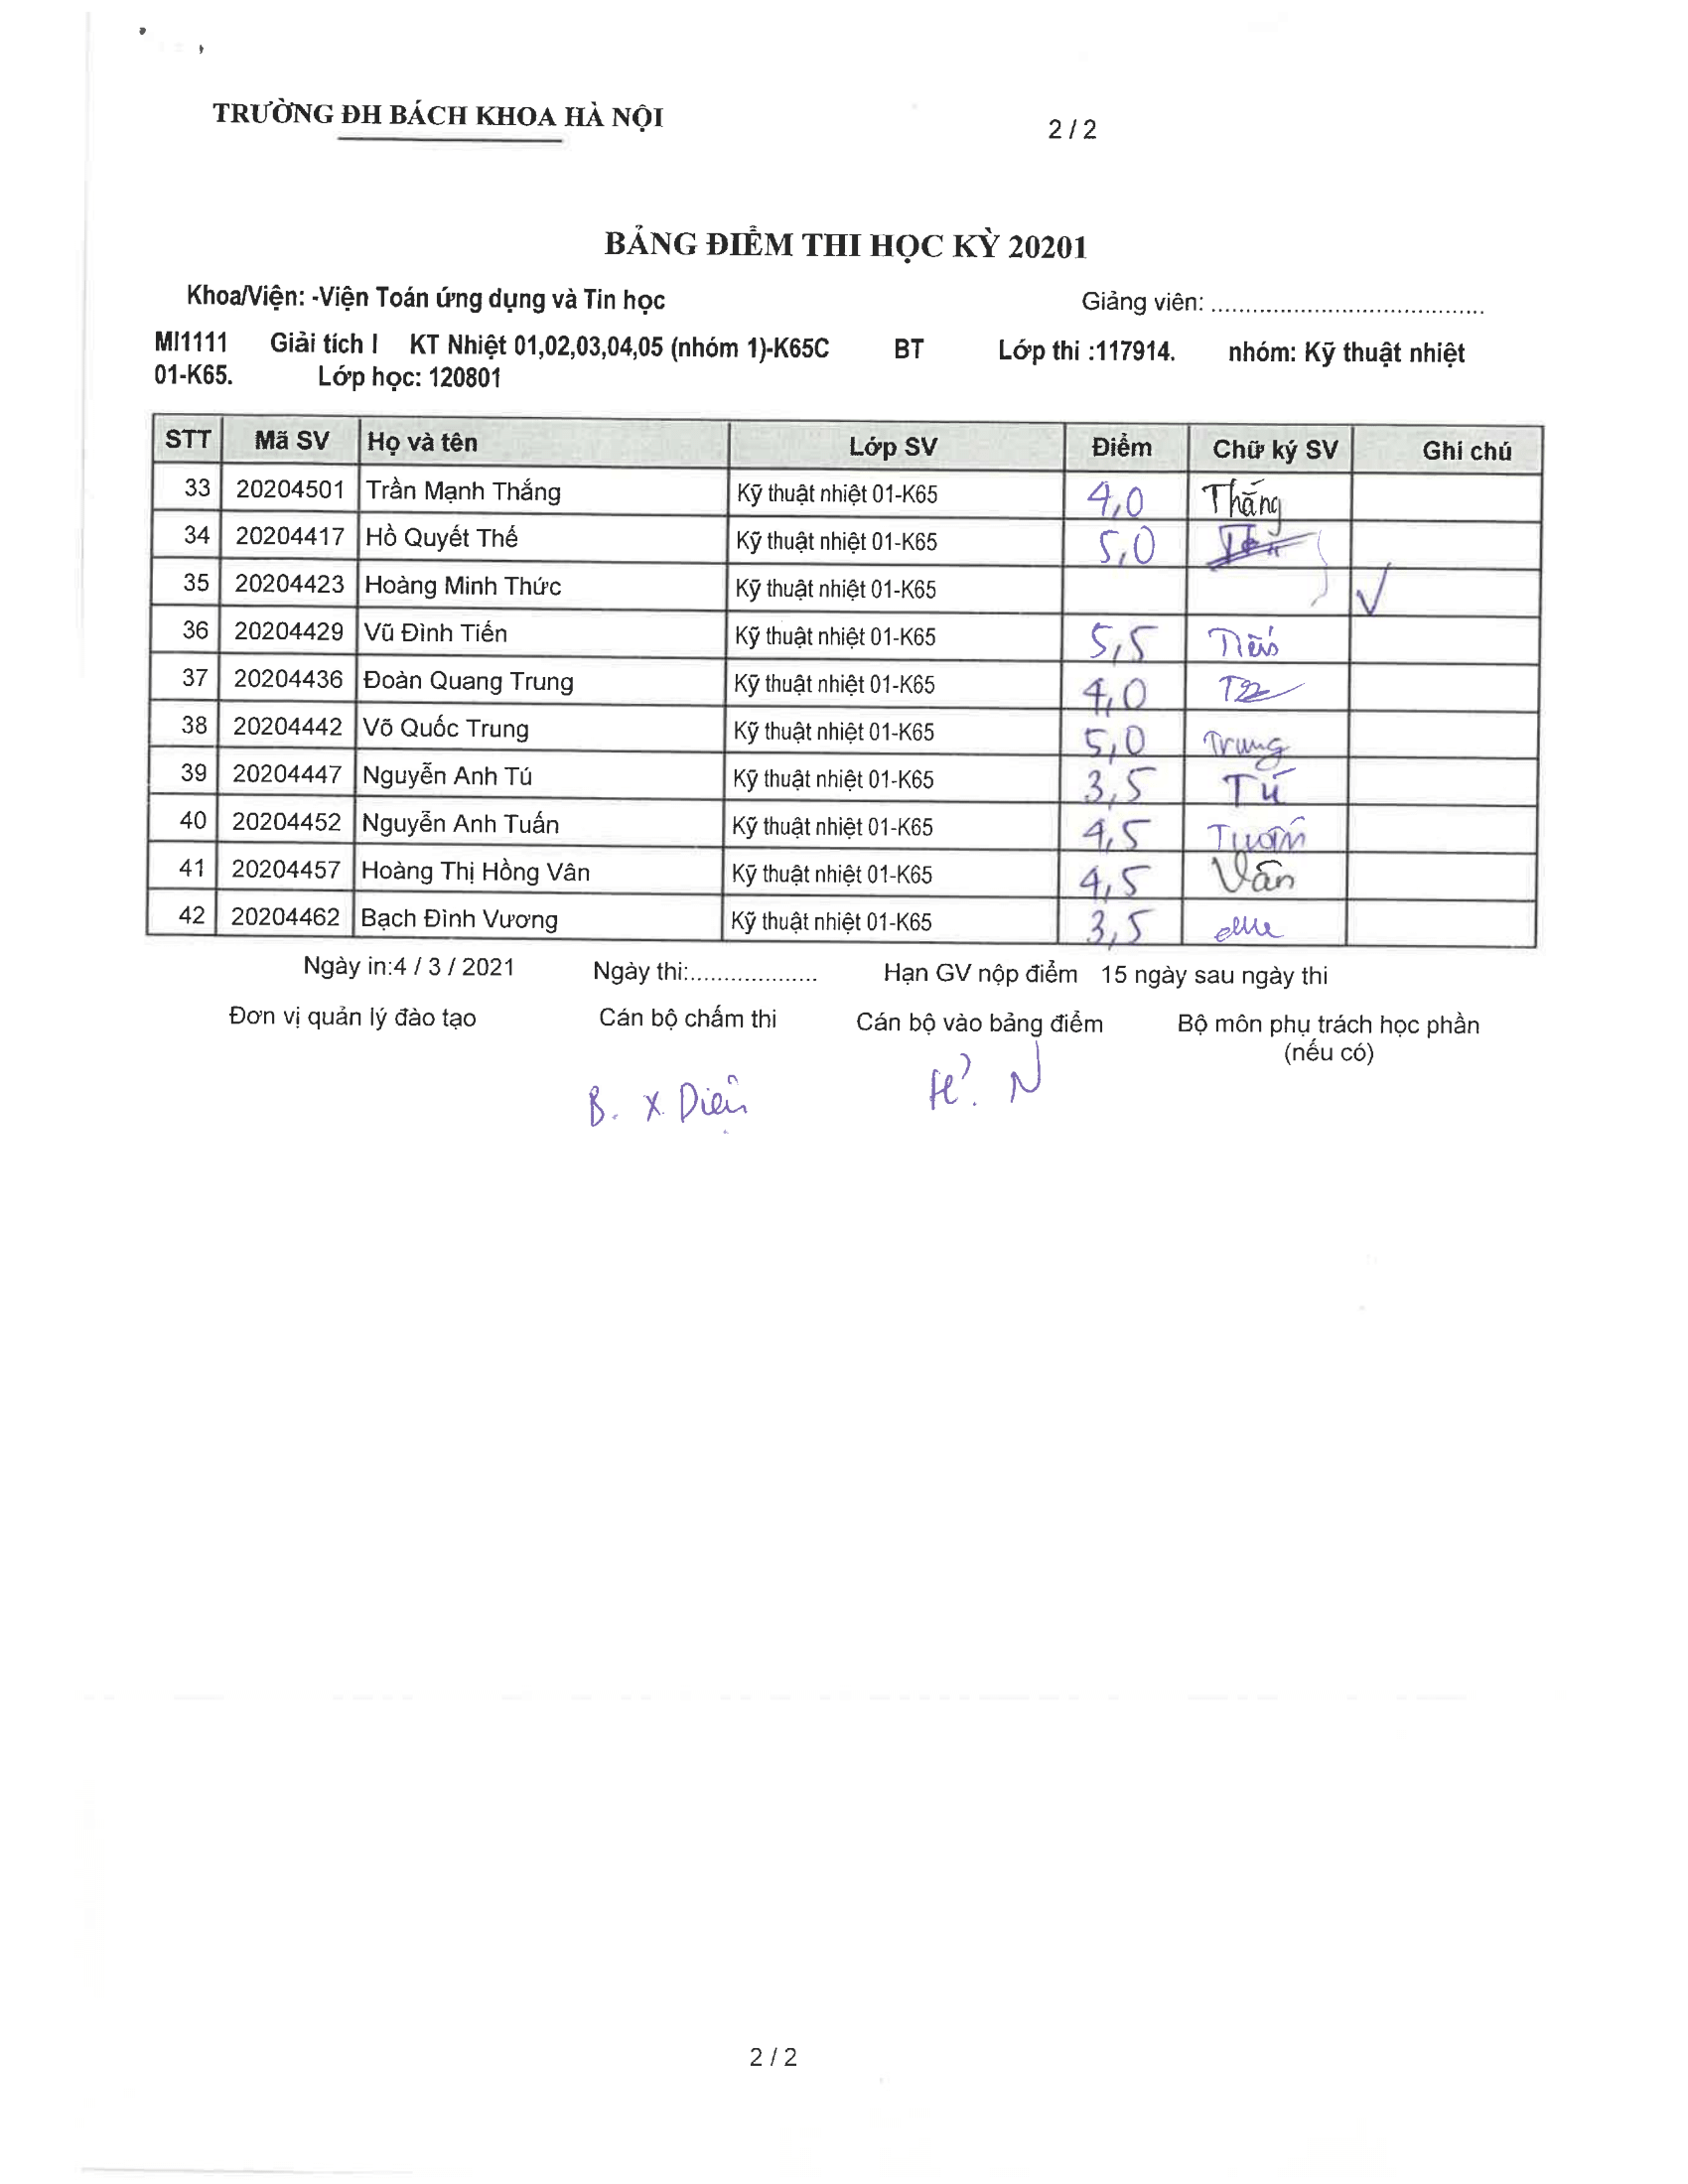 TRƯỜNG ĐH BÁCH KHOA HÀ NỘI
2 / 2
BẢNG ĐIỂM THI HỌC KỲ 20201
Khoa/Viện: -Viện Toán ứng dụng và Tin học Giảng viên: ........................................
MI1111 Giải tích I KT Nhiệt 01,02,03,04,05 (nhóm 1)-K65C BT Lớp thi :117914. nhóm: Kỹ thuật nhiệt
01-K65. Lớp học: 120801
STT Mã SV Họ và tên Lớp SV Điểm Chữ ký SV Ghi chú
33 20204501 Trần Mạnh Thắng Kỹ thuật nhiệt 01-K65 4,0 Thắng
34 20204417 Hồ Quyết Thế Kỹ thuật nhiệt 01-K65 5,0
35 20204423 Hoàng Minh Thức Kỹ thuật nhiệt 01-K65
36 20204429 Vũ Đình Tiến Kỹ thuật nhiệt 01-K65 5,5 Tiến
37 20204436 Đoàn Quang Trung Kỹ thuật nhiệt 01-K65 4,0
38 20204442 Võ Quốc Trung Kỹ thuật nhiệt 01-K65 5,0 Trung
39 20204447 Nguyễn Anh Tú Kỹ thuật nhiệt 01-K65 3,5 Tú
40 20204452 Nguyễn Anh Tuấn Kỹ thuật nhiệt 01-K65 4,5 Tuấn
41 20204457 Hoàng Thị Hồng Vân Kỹ thuật nhiệt 01-K65 4,5 Vân
42 20204462 Bạch Đình Vương Kỹ thuật nhiệt 01-K65 3,5
Ngày in:4 / 3 / 2021 Ngày thi:................... Hạn GV nộp điểm 15 ngày sau ngày thi
Đơn vị quản lý đào tạo Cán bộ chấm thi Cán bộ vào bảng điểm Bộ môn phụ trách học phần
(nếu có)
B. X. Diệu
2 / 2